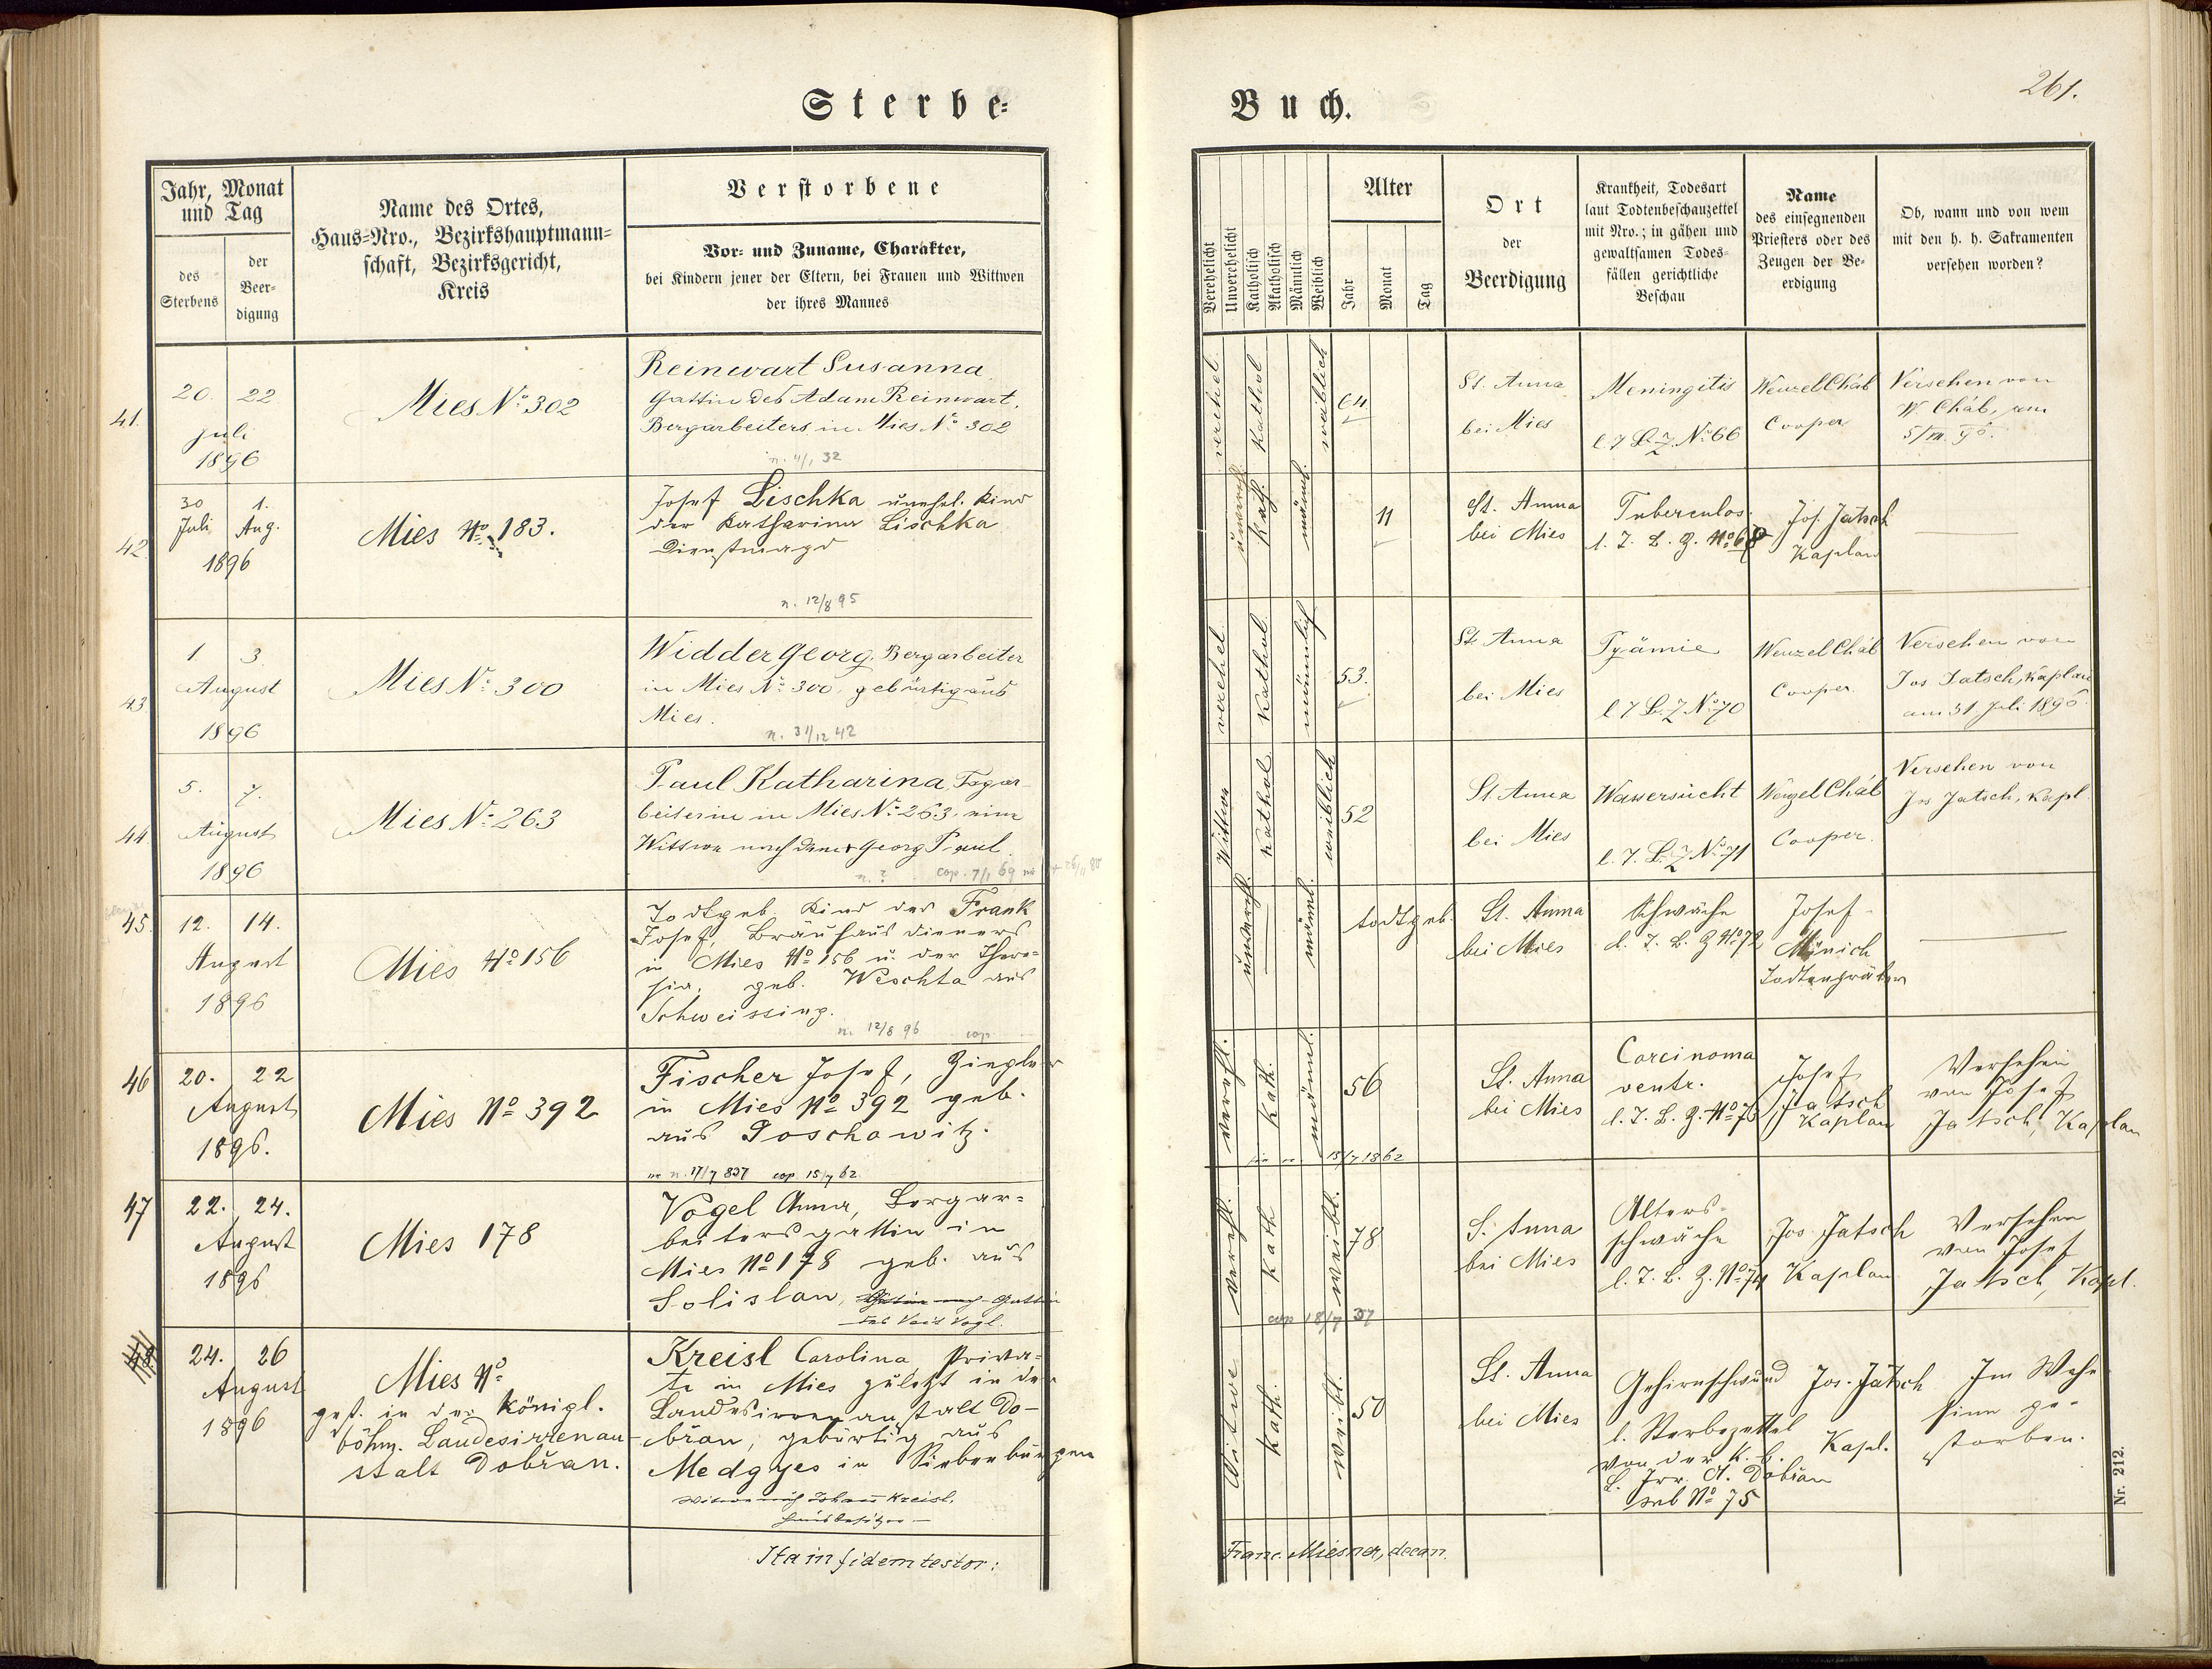 Sterbe-
Buch.
261.
Jahr, Monat
und Tag
des
Sterbens
der
Beer-
digung
Name des Ortes,
Haus-Nro., Bezirkshauptmann-
schaft, Bezirksgericht,
Kreis
Verstorbene
Vor- und Zuname, Charakter,
bei Kindern jener der Eltern, bei Frauen und Wittwen
der ihres Mannes
Verehelicht
Unverehelicht
Katholisch
Akatholisch
Männlich
Weiblich
Alter
Jahr
Monat
Tag
Ort
der
Beerdigung
Krankheit, Todesart
laut Todtenbeschauzettel
mit Nro.; in gähen und
gewaltsamen Todes-
fällen gerichtliche
Beschau
Name
des einsegnenden
Priesters oder des
Zeugen der Be-
erdigung
Ob, wann und von wem
mit den h. h. Sakramenten
versehen worden?
41.
20. 22
Juli
1896
Mies No 302
Reinwart Susanna,
Gattin des Adam Reinwart,
Bergarbeiters in Mies No 302
n. 4/1 32
verehel.
Kathol
weiblich
64
St. Anna
bei Mies
Meningitis
l T B Z No 66
Wenzel Cháb
Cooper
Versehen von
W. Cháb, am
5/VII. 96.
42.
30 1.
Juli Aug.
1896
Mies No 183.
Josef Lischka unehl. Kind
der Katharina Lischka
Dienstmagd
n. 12/8 95
unvereh.
Kath.
männl.
11
St. Anna
bei Mies
Tuberculos.
l. T. B. Z. No 68
Jos. Jatsch
Kaplan
43
1. 3.
August
1896
Mies No 300
Widder Georg, Bergarbeiter
in Mies No 300, gebürtig aus
Mies.
n. 31/12 42
verehel.
Kathol.
männlich
53.
St. Anna
bei Mies
Pyämie
l T B. Z No 70
Wenzel Cháb
Cooper
Versehen von
Jos Jatsch, Kaplan
am 31 Juli 1896
44
5. 7.
August
1896
Mies No 263
Paul Katharina, Tagar-
beiterin in Mies No 263, eine
Wittwe nach dem † Georg Paul.
n. ? cop. 7/1 69
Wittwe
Kathol.
weiblich
52
St. Anna
bei Mies
Wassersucht
l. T. B. Z No 71
Wenzel Cháb
Cooper.
Versehen von
Jos Jatsch, Kapl.
45.
12. 14.
August
1896
Mies No 156
Todtgeb. Kind des Frank
Josef, Bräuhausdieners
in Mies No 156 u. der There-
sia, geb. Weschta aus
Schweissing.
n. 12/8 96 cop
unverehl.
männl.
todtgeb.
St. Anna
bei Mies
Schwäche
l. T. B. Z No 72
Josef
Münich
Todtengräber
46
20. 22
August
1896.
Mies No 392
Fischer Josef, Ziegler
in Mies No 392 geb.
aus Poschowitz.
n. 17/7 837 cop 15/7 62.
verehl.
Kath.
männl.
15/7 1862
56
St. Anna
bei Mies
Carcinoma
ventr.
l. T. B. Z. No 73
Josef
Jatsch
Kaplan
Versehen
von Josef
Jatsch, Kaplan
47
22. 24.
August
1896
Mies 178
Vogel Anna, Bergar-
beitersgattin in
Mies No 178 geb. aus
Solislau, Gattin
des Veit Vogl.
verehl.
Kath
weibl.
cop 18/7 37
78
S. Anna
bei Mies
Alters-
schwäche
l. T. B. Z. No 74
Jos. Jatsch
Kaplan
Versehen
von Josef
Jatsch, Kapl.
48
24. 26
August
1896
Mies No
gest. in der königl.
böhm. Landesirrenan-
stalt Dobřan.
Kreisl Carolina, Priva-
te in Mies zuletzt in der
Landesirrenanstalt Do-
břan, gebürtig aus
Medgyes in Siebenbürgen
Witwe nach Johann Kreisl,
Hausbesitzer
Witwe
Kath.
Weibl.
50
St. Anna
bei Mies
Gehirnschwund
l. Sterbezettel
von der k. b.
L. Irr. A. Dobřan
sub No 75
Jos. Jatsch
Kapl.
Im Wahn-
sinn ge-
storben.
Ita in fidem testor:
Franc. Miesner, decan.
Nr. 212.